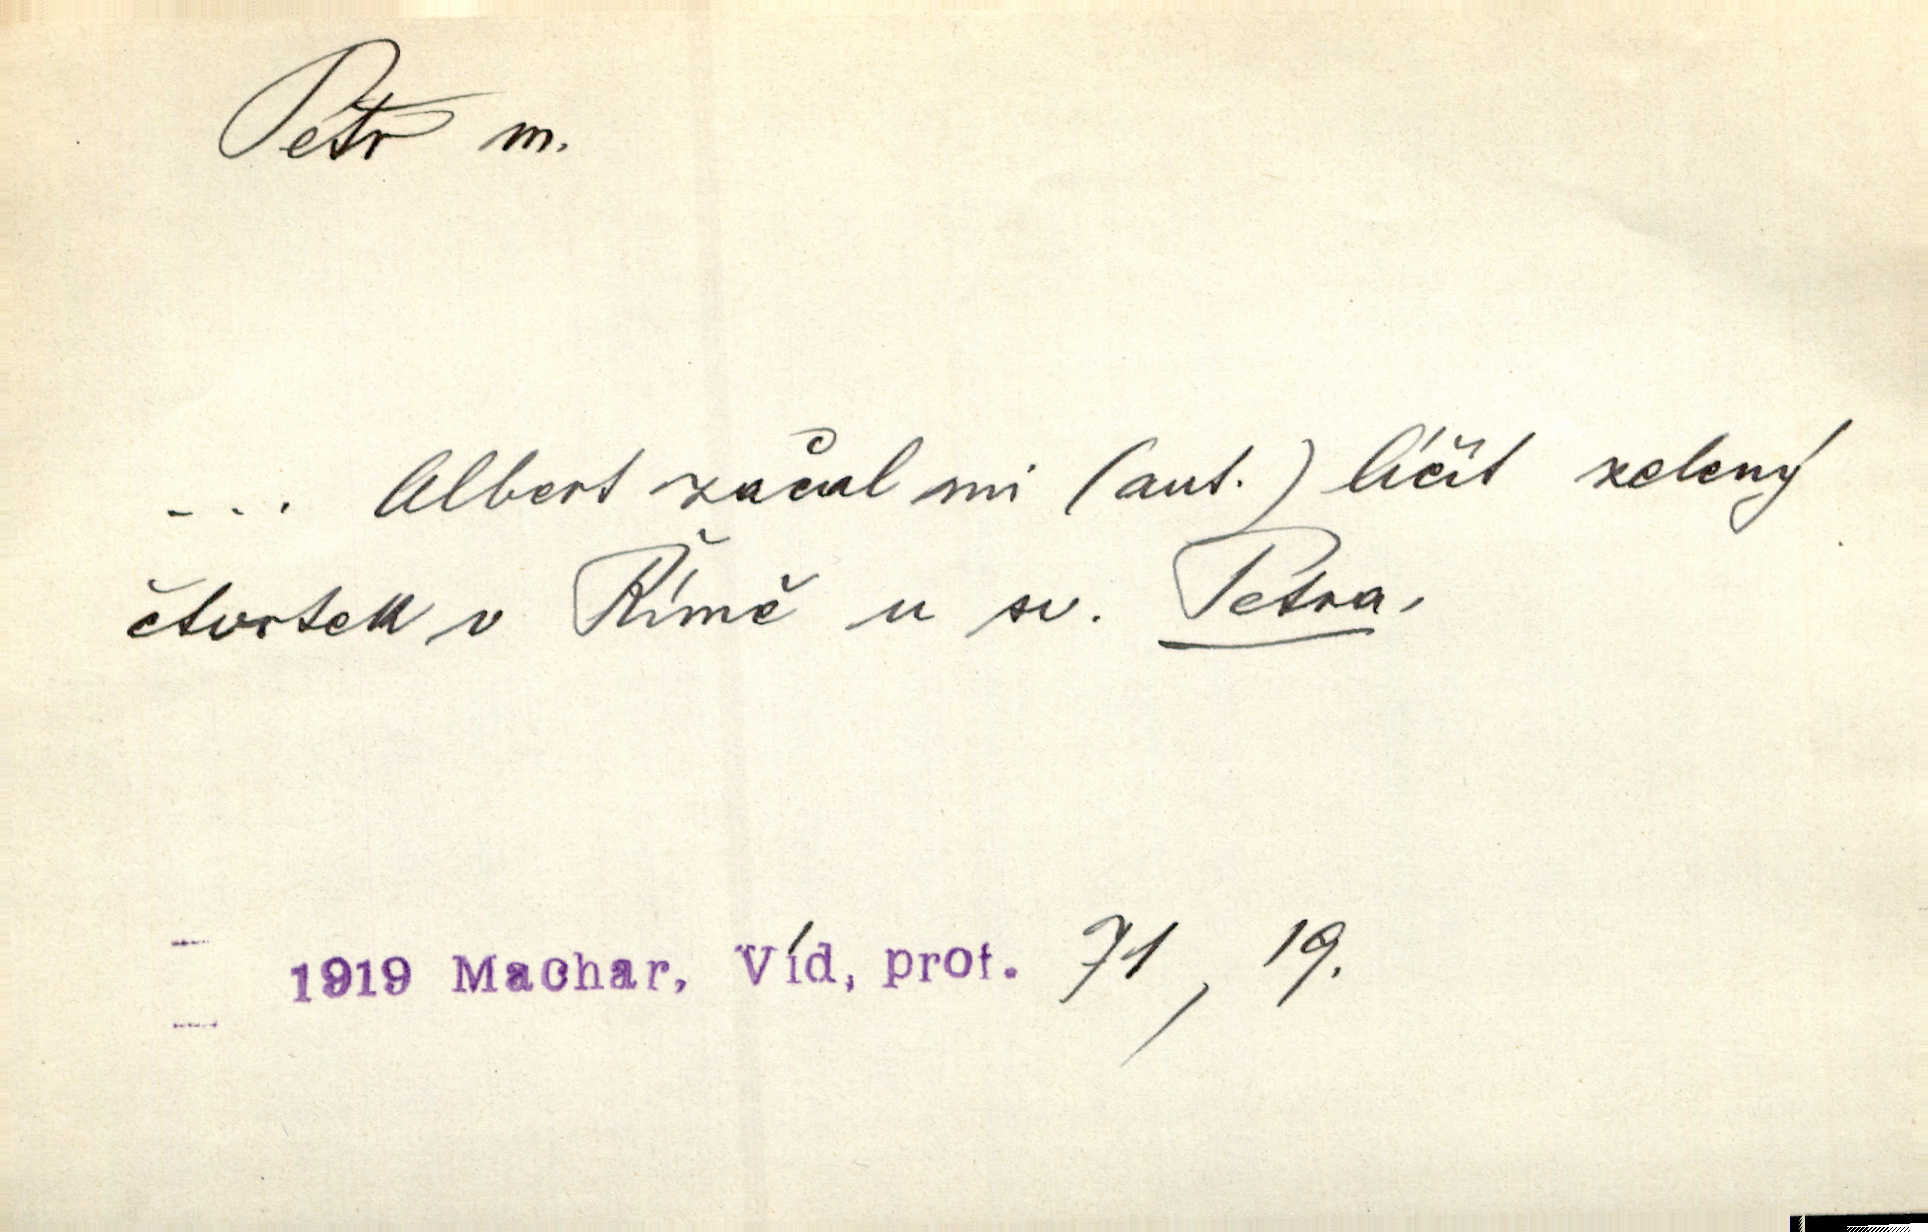 Petr m.
... Albert začal mi (aut.) líčit zelený
čtvrtek v Římě u sv. Petra.
1919 Machar, Víd, prot. 71, 19.